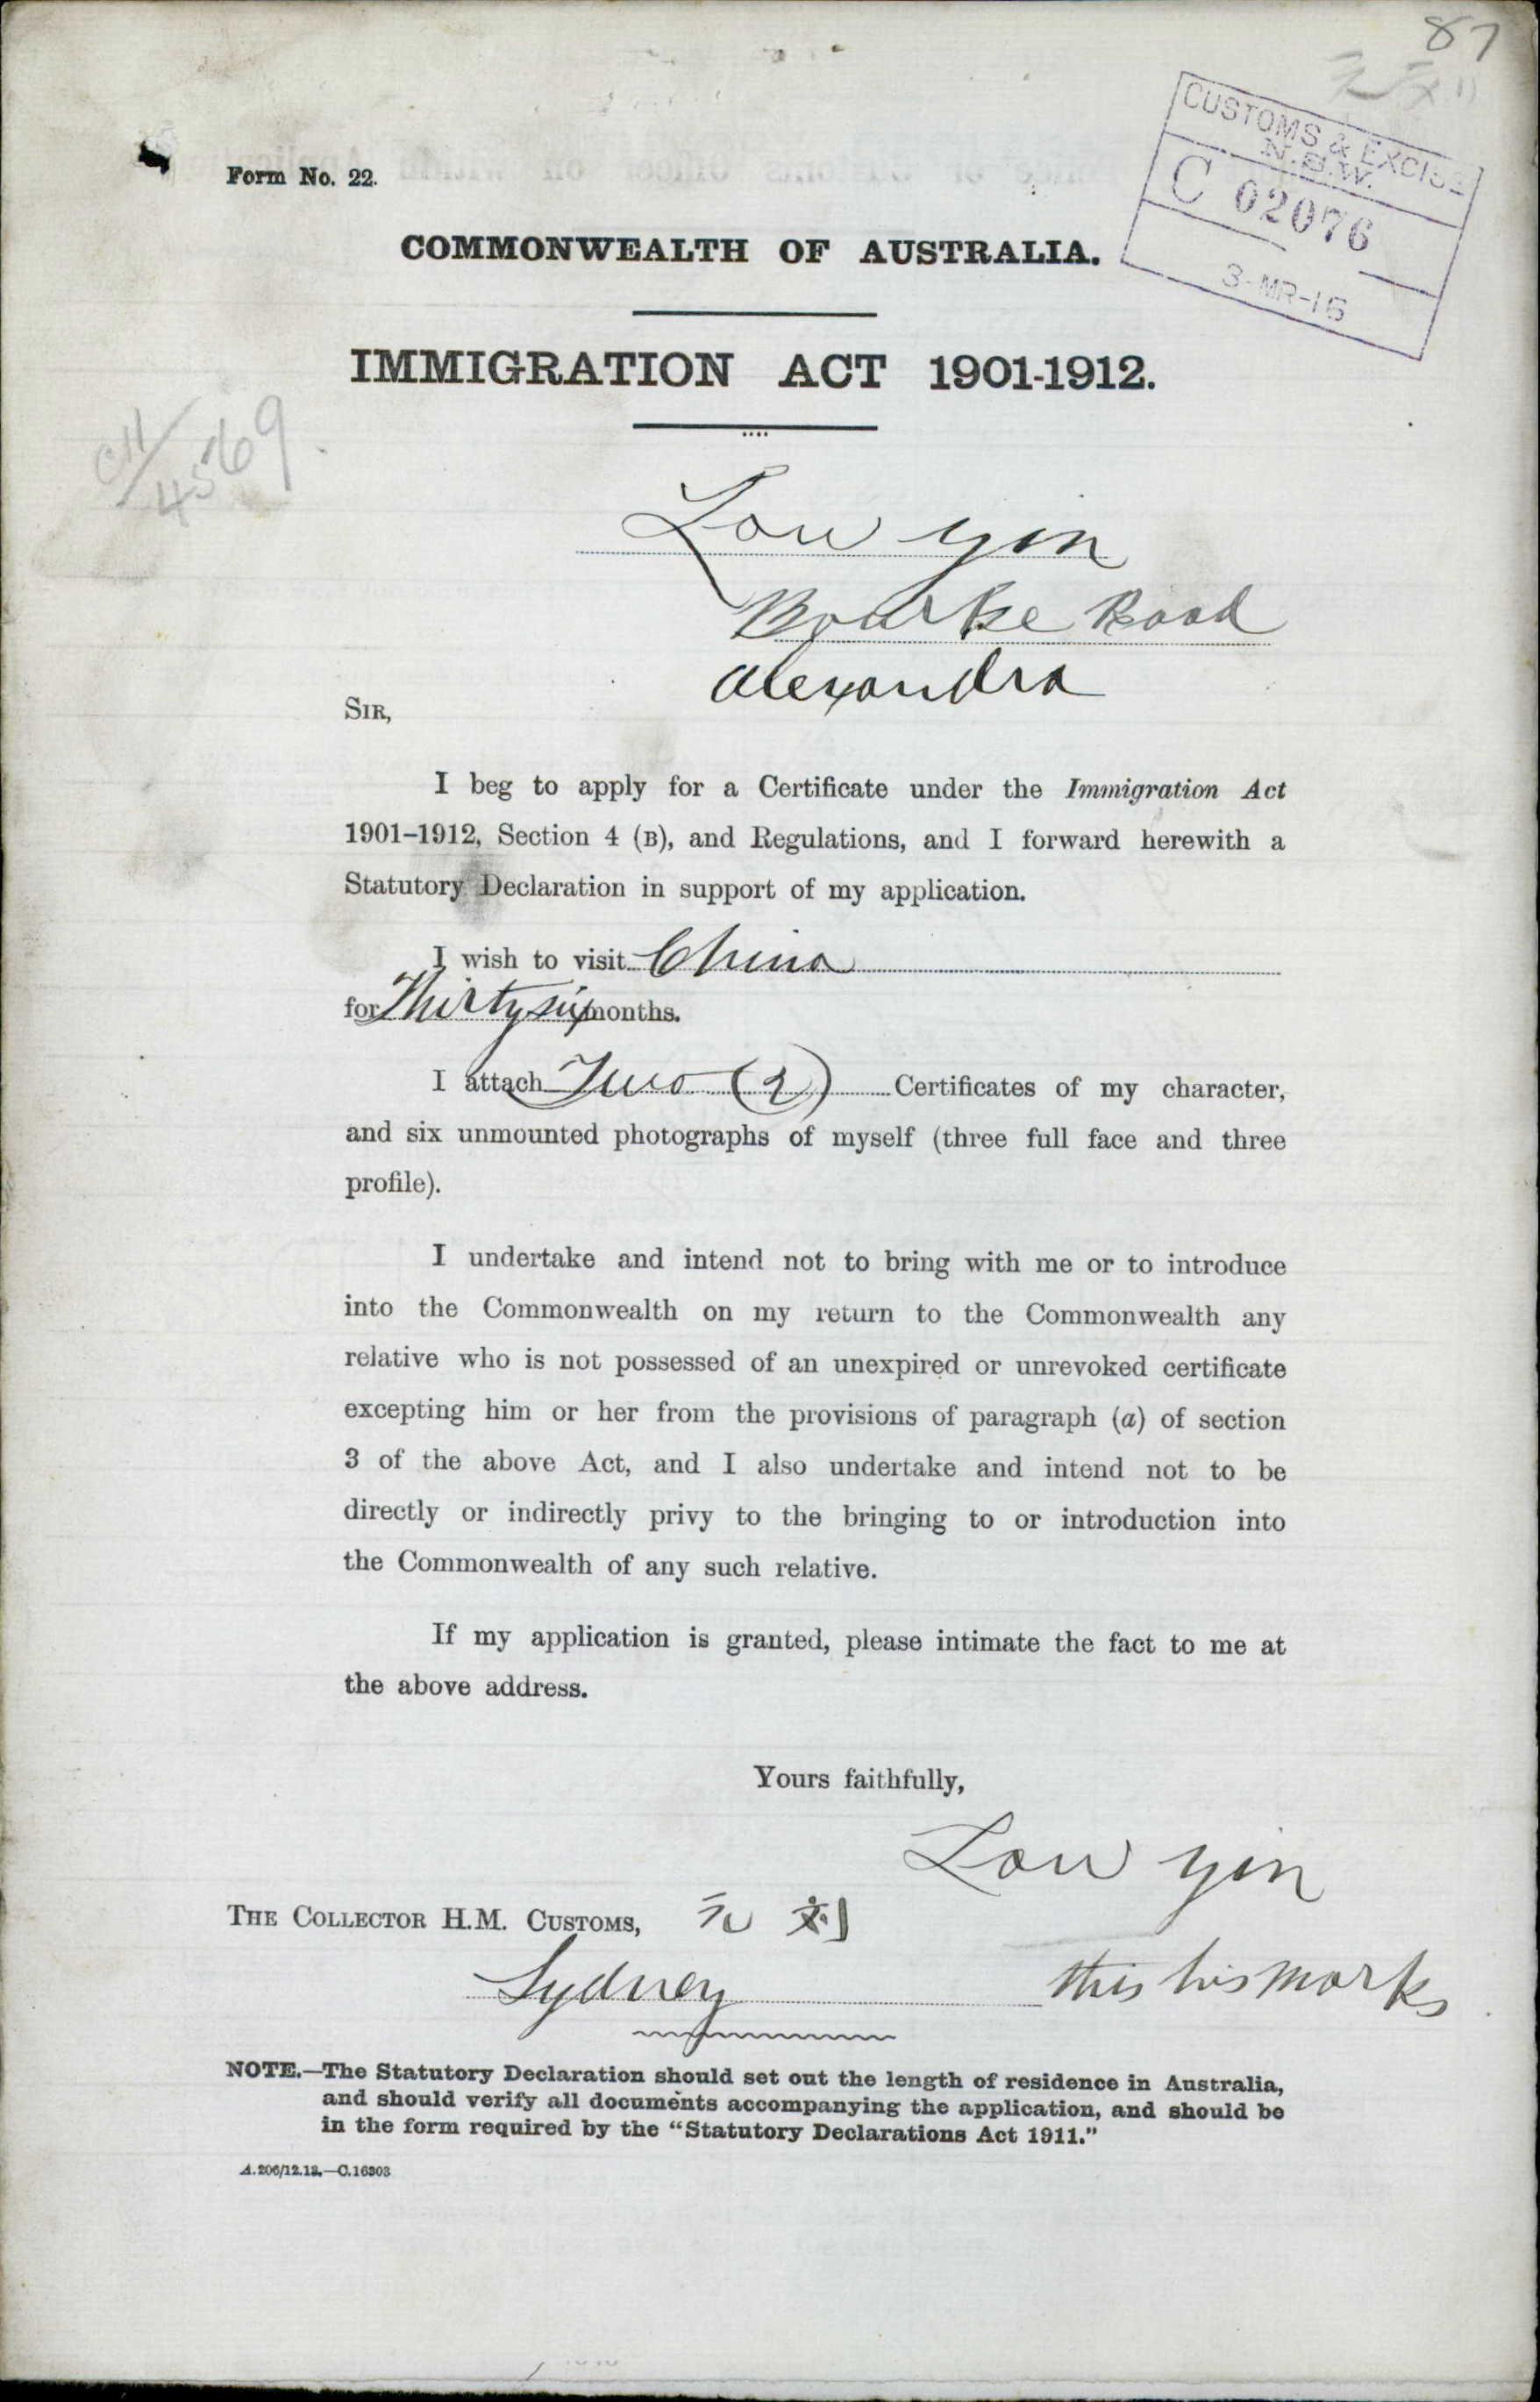 87
CUSTOMS & EXCISE
N.S.W.
C 02076
3-MR-16
Form No. 22.
COMMONWEALTH OF AUSTRALIA.
IMMIGRATION ACT 1901-1912.
CH/4569.
Low yin
Bourke Road
Alexandra
SIR,
I beg to apply for a Certificate under the Immigration Act
1901–1912, Section 4 (B), and Regulations, and I forward herewith a
Statutory Declaration in support of my application.
I wish to visit China
for Thirty six months.
I attach Two (2) Certificates of my character,
and six unmounted photographs of myself (three full face and three
profile).
I undertake and intend not to bring with me or to introduce
into the Commonwealth on my return to the Commonwealth any
relative who is not possessed of an unexpired or unrevoked certificate
excepting him or her from the provisions of paragraph (a) of section
3 of the above Act, and I also undertake and intend not to be
directly or indirectly privy to the bringing to or introduction into
the Commonwealth of any such relative.
If my application is granted, please intimate the fact to me at
the above address.
Yours faithfully,
Low yin
THE COLLECTOR H.M. CUSTOMS, 元 刘
Sydney this his mark
NOTE.—The Statutory Declaration should set out the length of residence in Australia,
and should verify all documents accompanying the application, and should be
in the form required by the “Statutory Declarations Act 1911.”
A.206/12.12.—C.16303